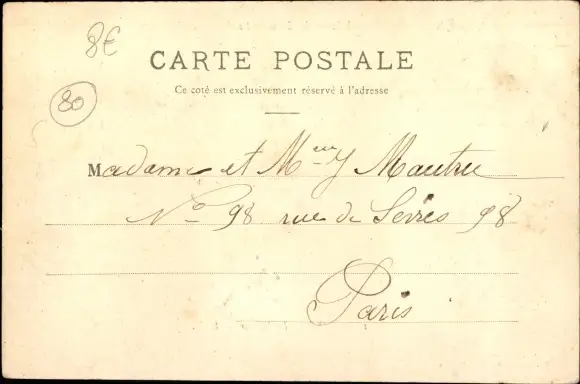 8€
CARTE POSTALE
80
Ce coté est exclusivement réservé à l'adresse
Madame et M
No 98 rue de Sevres 98
Paris